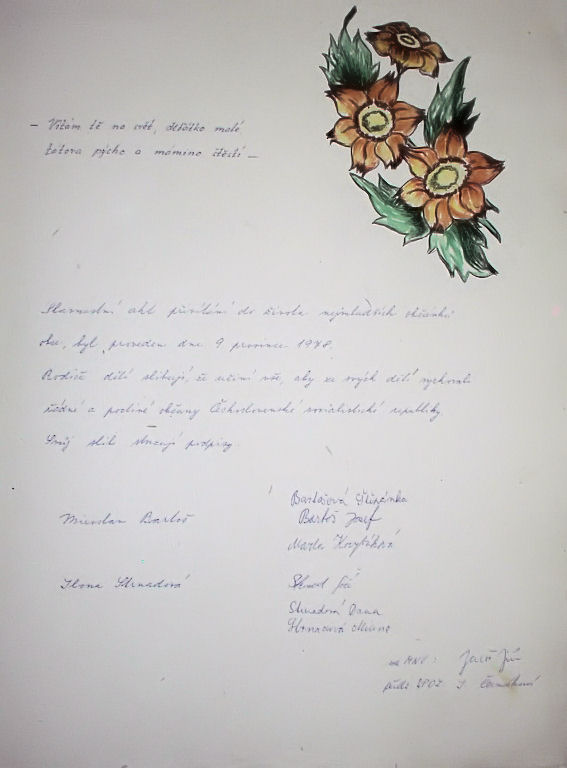 – Vítám tě na svět, děťátko malé,
tátova pýcho a mámino štěstí –
Slavnostní akt přivítání do života nejmladších občánků
obce, byl proveden dne 9 prosince 1978.
Rodiče dětí slibují, že učiní vše, aby ze svých dětí vychovali
řádné a poctivé občany Československé socialistické republiky.
Svůj slib stvrzují podpisy.
Bartošová Štěpánka
Miroslav Bartoš
Bartoš Josef
Marta
Ilona Strnadová
Strnad Jiří
Strnadová Dana
Strnadová
za MNV: Jiří